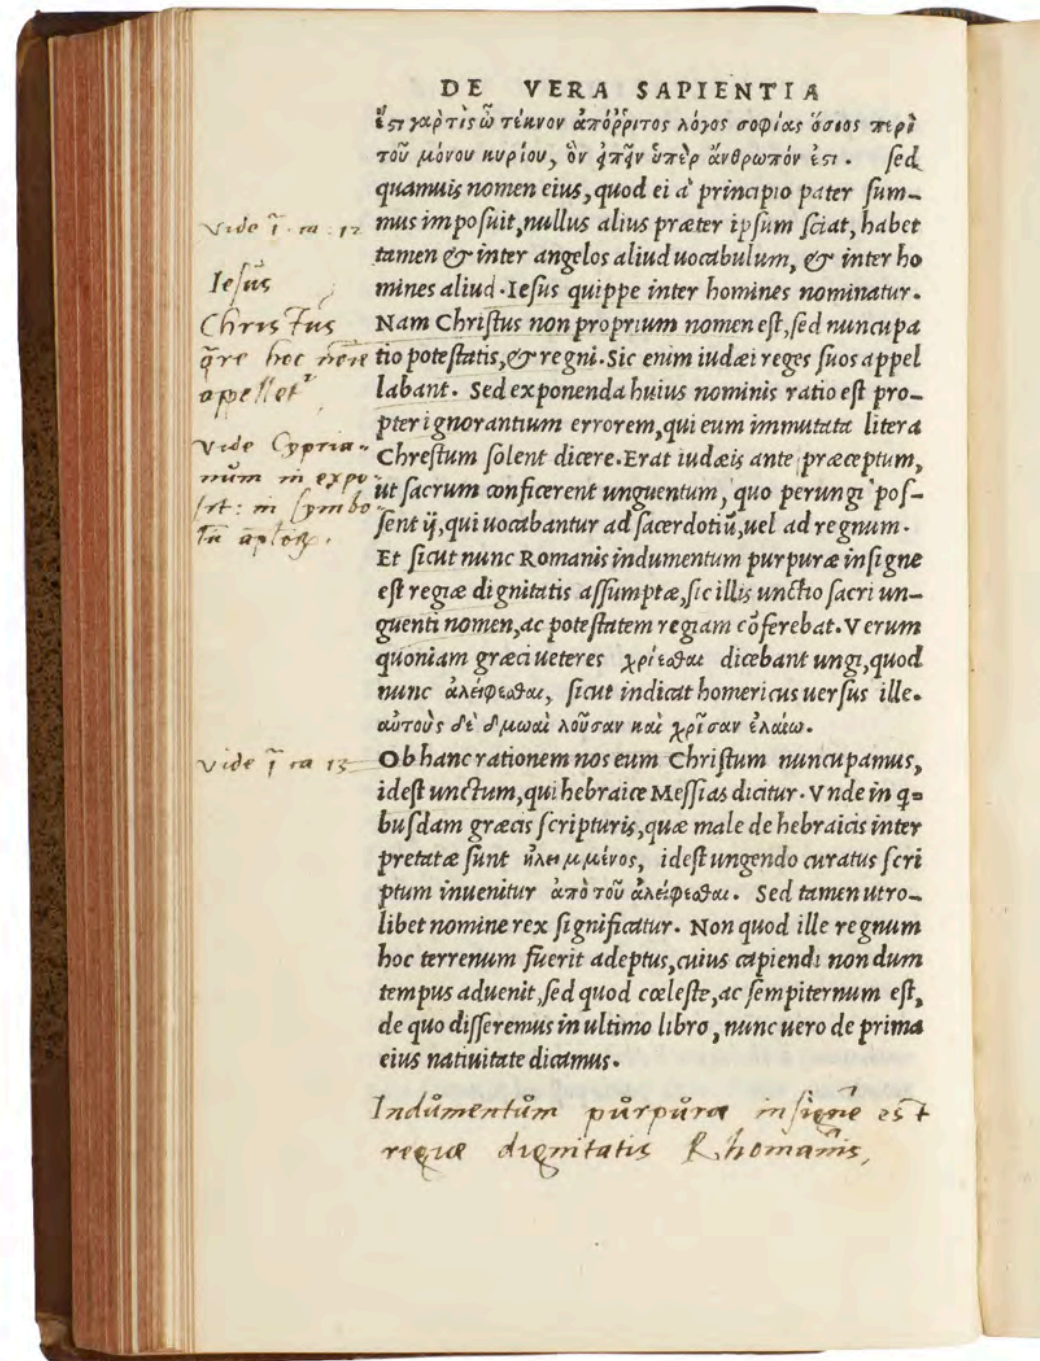 DE VERA SAPIENTIA
ἔςι γάρ τὶς ὦ τέκνον ἀπόῤῥιτος λόγος σοφίας ὅσιος περὶ
τοῦ μόνου κυρίου, ὃν ὑπὲρ ἄνθρωπόν ἐςι. sed
quamuis nomen eius, quod ei à principio pater sum-
Vide ca: 12
mus imposuit, nullus alius præter ipsum sciat, habet
tamen & inter angelos aliud uocabulum, & inter ho
Iesus
mines aliud. Iesus quippe inter homines nominatur.
Christus
Nam Christus non proprium nomen est, sed nuncupa
q̄re hoc nōīe
tio potestatis, & regni. Sic enim iudæi reges suos appel
appellet
labant. Sed exponenda huius nominis ratio est pro-
pter ignorantium errorem, qui eum immutata litera
Vide Cypria-
Chrestum solent dicere. Erat iudæis ante præceptum,
num in expo
ut sacrum conficerent unguentum, quo perungi pos-
sit: in symbo
sent ij, qui uocabantur ad sacerdotiũ, uel ad regnum.
Et sicut nunc Romanis indumentum purpuræ insigne
est regiæ dignitatis assumptæ, sic illis unctio sacri un-
guenti nomen, ac potestatem regiam cõferebat. Verum
quoniam græci ueteres χρίεσθαι dicebant ungi, quod
nunc ἀλείφεσθαι, sicut indicat homericus uersus ille.
αὐτοὺς δὲ δμωαὶ λοῦσαν καὶ χρῖσαν ἐλαίω.
Vide ca 13
Ob hanc rationem nos eum Christum nuncupamus,
idest unctum, qui hebraice Messias dicitur. Vnde in q=
busdam græcis scripturis, quæ male de hebraicis inter
pretatæ sunt ἠλειμμένος, idest ungendo curatus scri
ptum inuenitur ἀπὸ τοῦ ἀλείφεσθαι. Sed tamen utro-
libet nomine rex significatur. Non quod ille regnum
hoc terrenum fuerit adeptus, cuius capiendi non dum
tempus aduenit, sed quod cœleste, ac sempiternum est,
de quo disseremus in ultimo libro, nunc uero de prima
eius natiuitate dicamus.
Indůmentům půrpůræ insigne est
regiæ dignitatis Rhomanis,